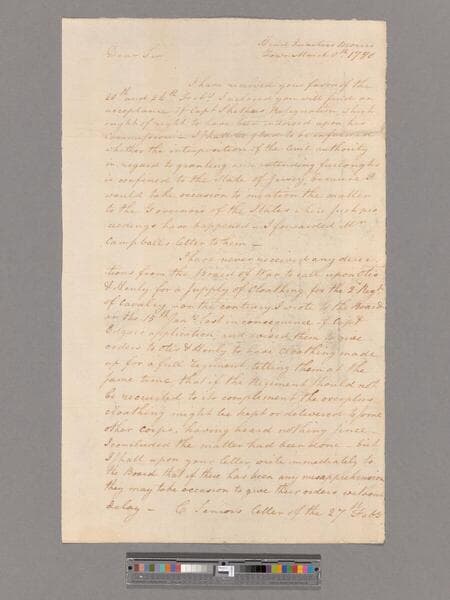 Head Quarters Morris
Dear Sir Town March 8th 1780
I have received your favors of the
20th and 26th Feby. Inclosed you will find an
acceptance of Capt Shethars Resignation which
ought of right to have been entered upon his
Commission — I shall be glad to be informed
whether the interposition of the civil authority
in regard to granting and extending furloughs
is confined to the State of Jersey, because I
would take occasion to mention the matter
to the Governors of the States where such pro
ceedings have happened — I forwarded Mr
Campbells letter to them —
I have never received any direc
tions from the Board of War to call upon Otis
& Henly for a supply of Cloathing for the 2d Regt
of Cavalry — on the contrary, I wrote to the Board
on the 15th last in consequence of Capt
application and wished them to give
orders to Otis & Henly to have Cloathing made
up for a full Regiment, telling them at the
same time that if the Regiment should not
be recruited to its complement the overplus
cloathing might be kept or delivered to some
other corps, having heard nothing since
I concluded the matter had been done — but
I shall upon your letter, write immediately to
the Board that if there has been any misapprehension
they may take occasion to give their orders without
delay — letter of the 27th Feby